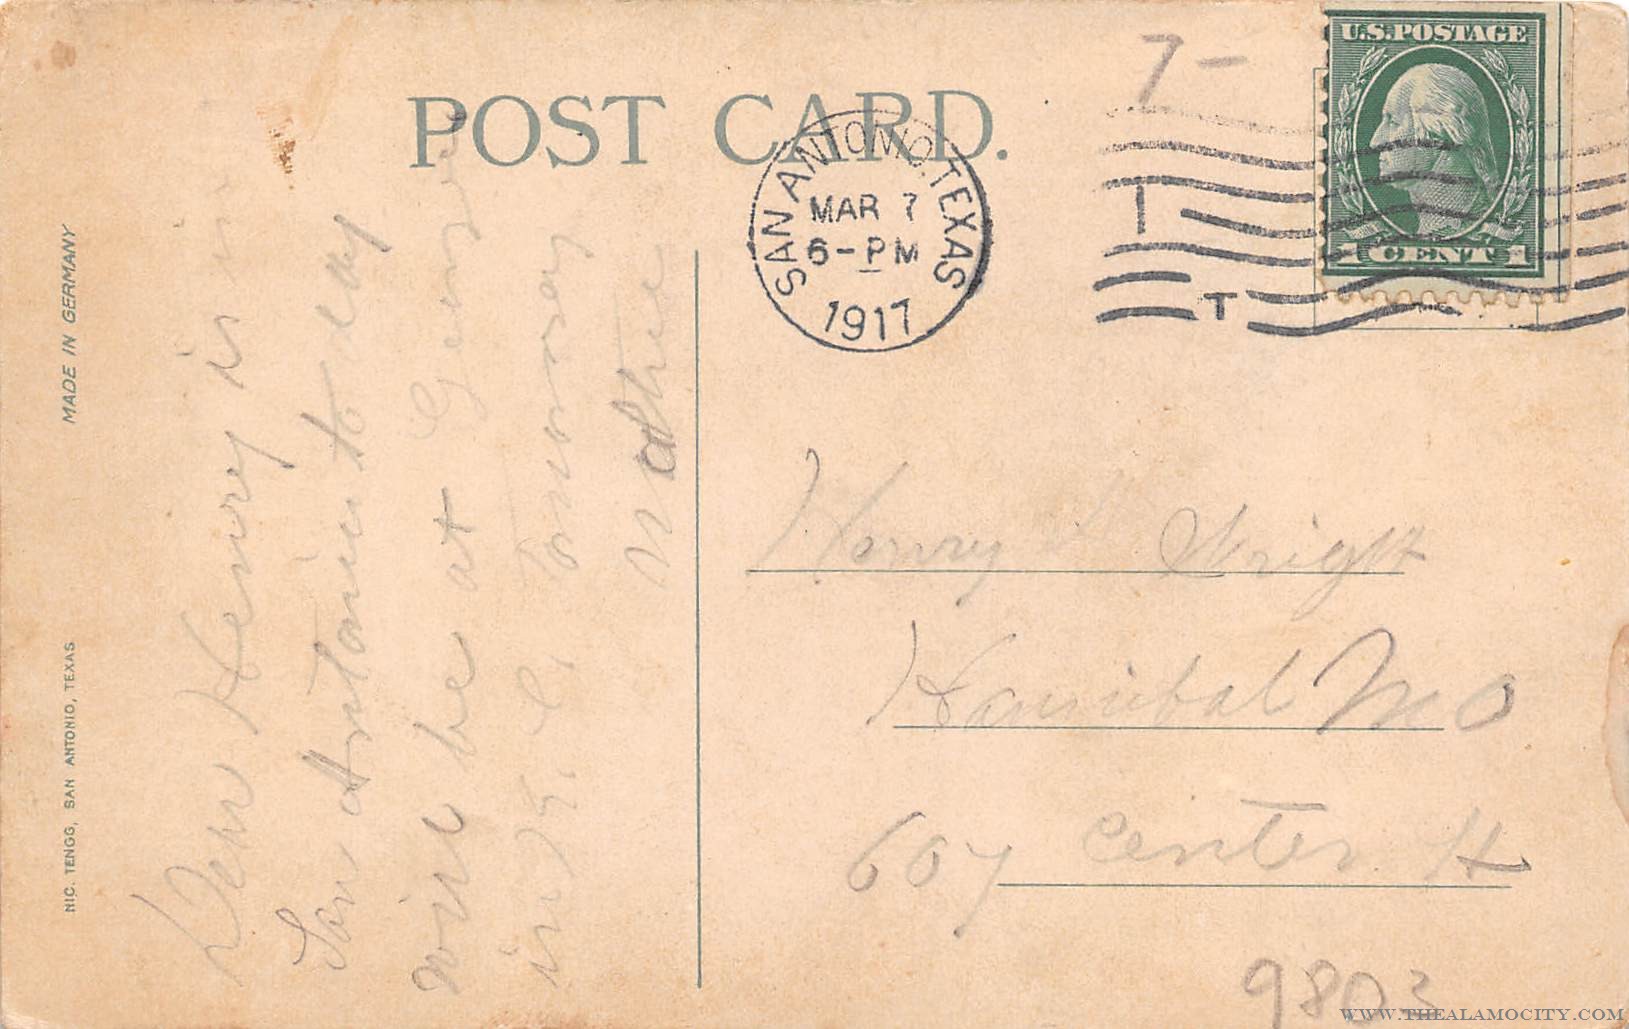 POST CARD.
SAN ANTONIO, TEXAS
MAR 7
6-PM
1917
7-
U.S.POSTAGE
1 CENT 1
T
MADE IN GERMANY
NIC. TENGG, SAN ANTONIO, TEXAS
Dear Henry is in
San Antonio to day
will be at
in K. C.
Mother
Henry Wright
Hannibal MO
607 Center St
9803
WWW.THEALAMOCITY.COM